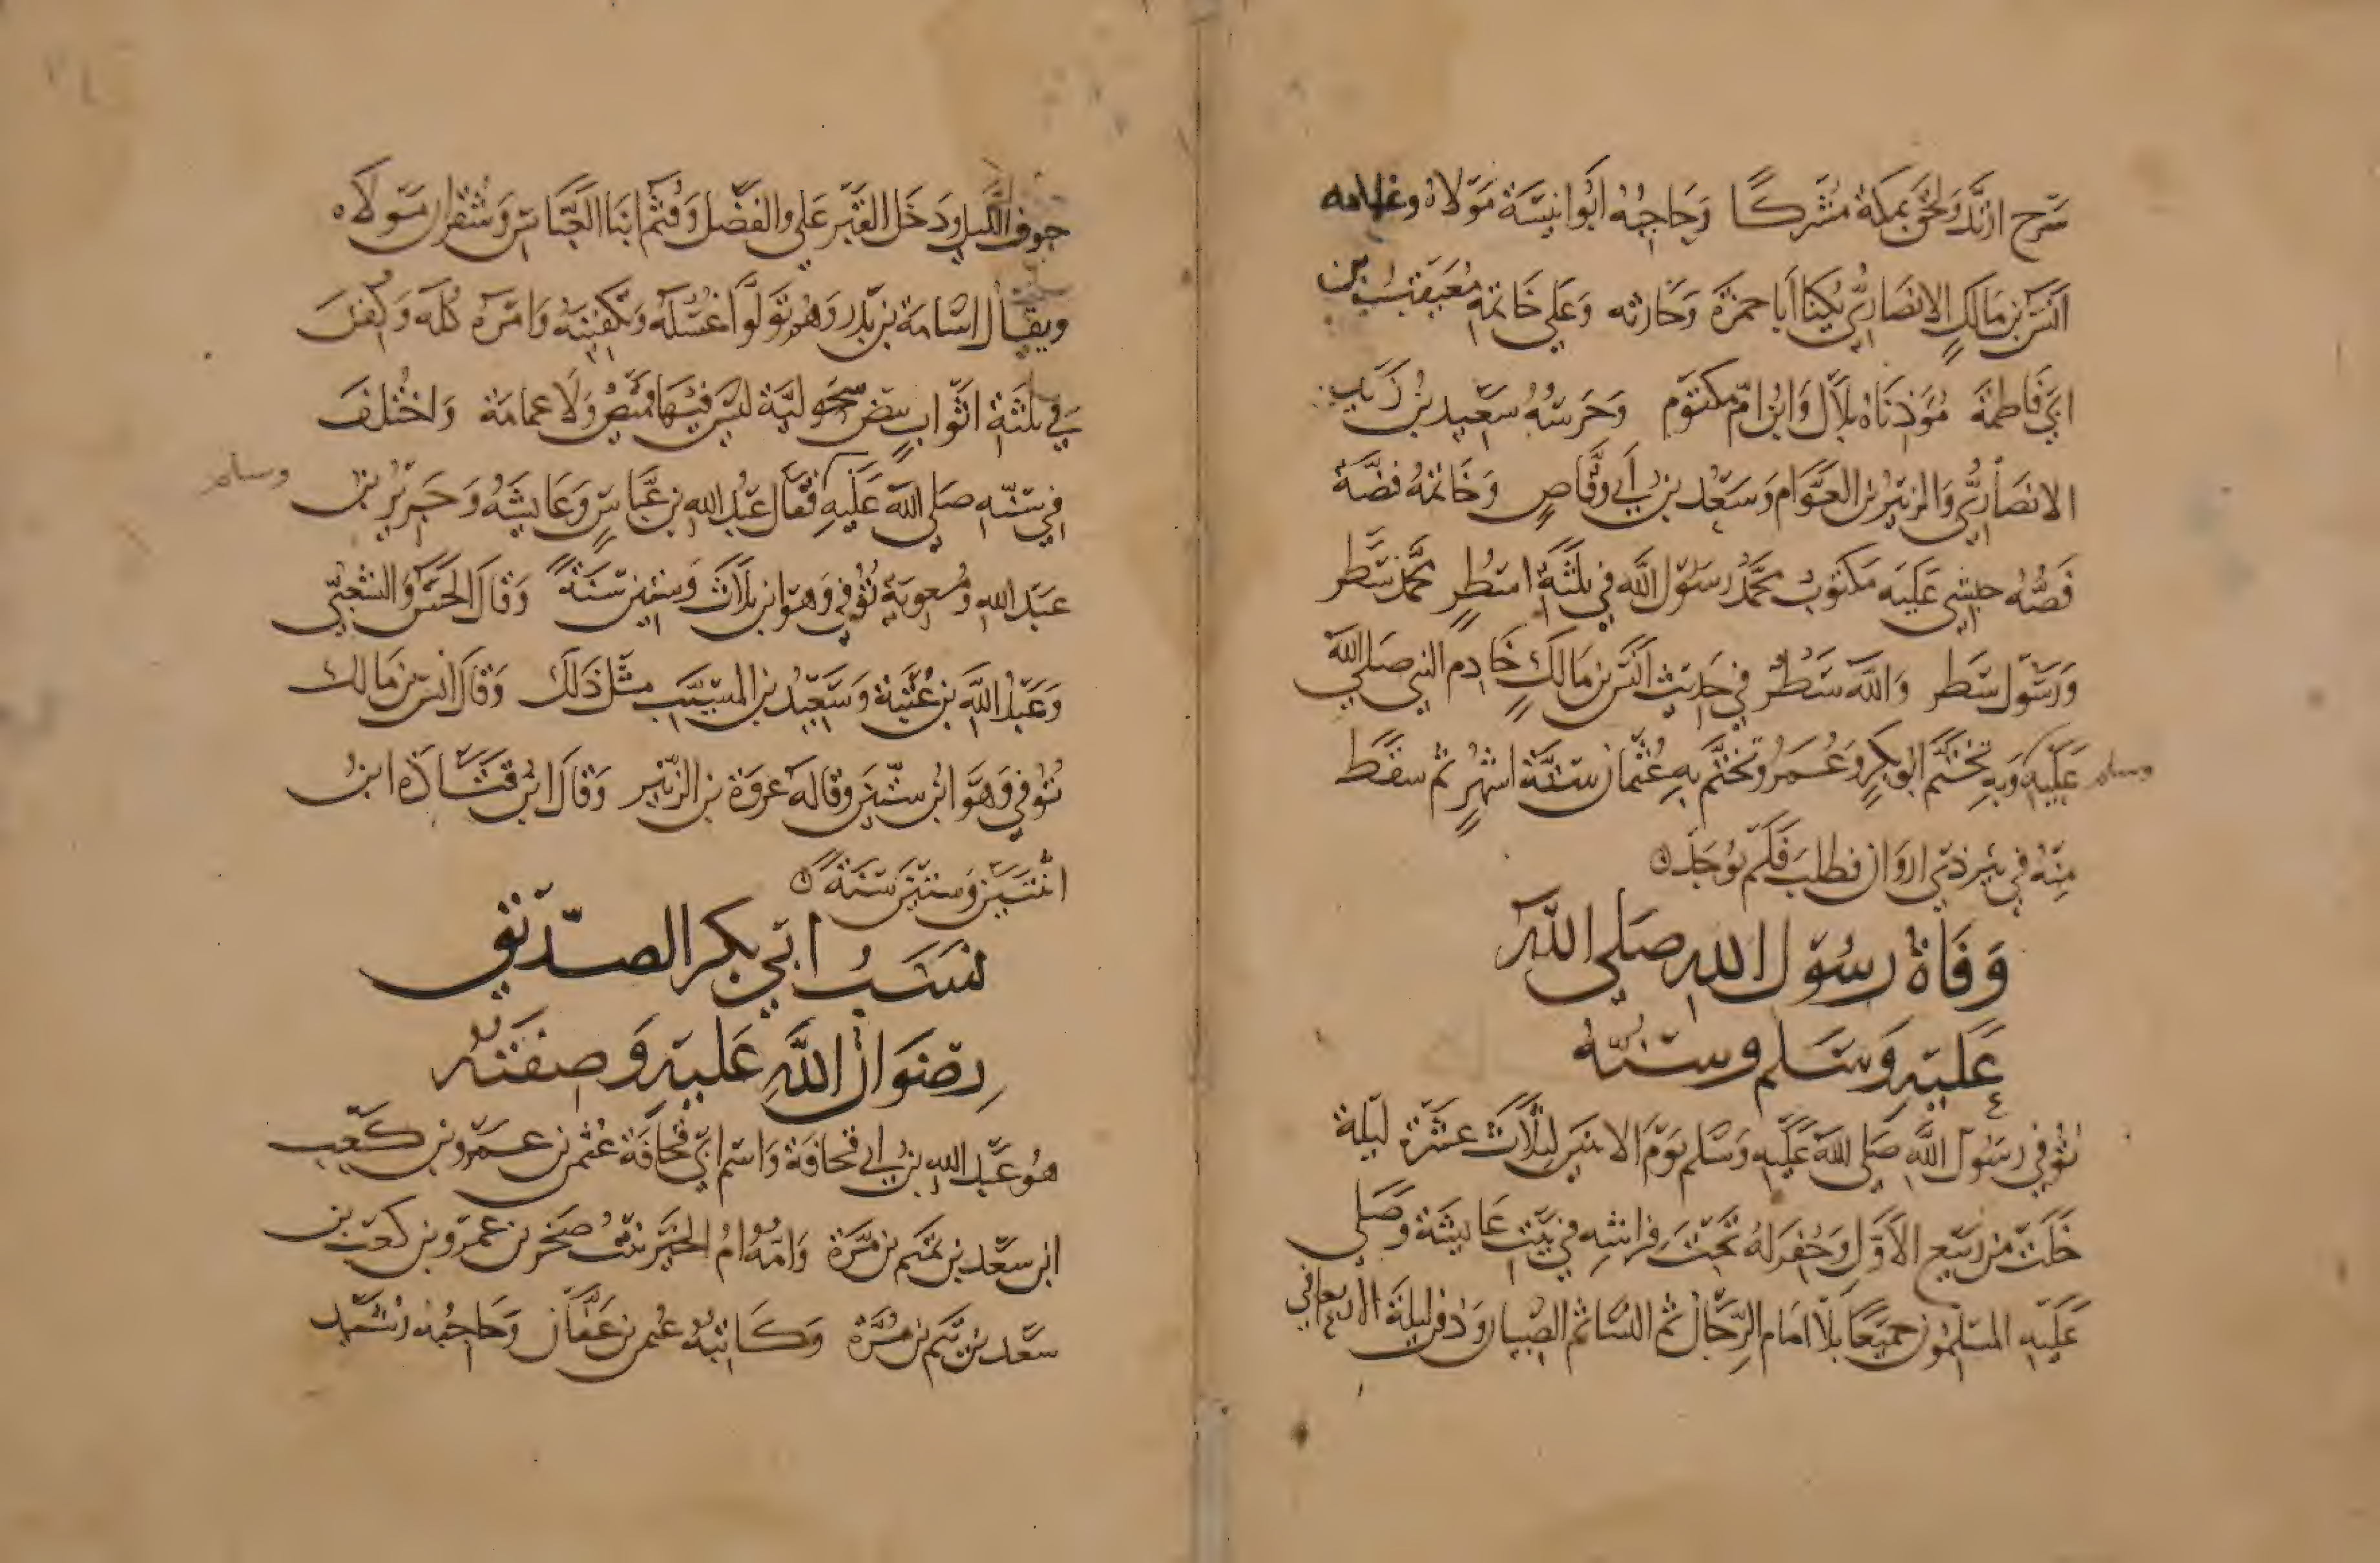 سرح ارتد ولحق بمكة مشركا وحاجبه ابو انيسة مولاه وغلامه
انس بن مالك الانصاري يكنا ابا حمزة وحارثه وعلى خاتمه معيقيب بن
ابي فاطمة مؤذناه بلال وابن ام مكتوم وحرسه سعيد بن زيد
الانصاري والزبير بن العوام وسعد بن ابي وقاص وخاتمه فضة
فصه حبشي عليه مكتوب محمد رسول الله في ثلثة اسطر محمد سطر
ورسول سطر والله سطر في حديث انس بن مالك خادم النبي صلى الله
عليه وسلم وبه تختم ابو بكر وعمر وتختم به عثمان ستة اشهر ثم سقط
منه في بير ذي اروان فطلب فلم يوجد
وفاة رسول الله صلى الله
عليه وسلم وسنه
توفي رسول الله صلى الله عليه وسلم يوم الاثنين لثلاث عشرة ليلة
خلت من ربيع الاول وحفر له تحت فراشه في بيت عايشة وصلى
عليه المسلمون جميعا بلا امام الرجال ثم النسا ثم الصبيان ودفن ليلة الاربعا في
جوف الليل ودخل القبر علي والفضل وقثم ابنا العباس وشقران مولاه
ويقال اسامة بن زيد وهم تولوا غسله وتكفينه وامره كله وكفن
في ثلثة اثواب بيض سحولية ليس فيها قميص ولا عمامة واختلف
في سنه صلى الله عليه وسلم فقال عبد الله بن عباس وعايشه وجرير بن
عبد الله ومعوية توفي وهو ابن ثلاث وستين سنة وقال الحسن والشعبي
وعبد الله بن عتبة وسعيد بن المسيب مثل ذلك وقال انس بن مالك
توفي وهو ابن ستين وقاله عروة بن الزبير وقال ابن قتادة ابن
اثنتين وستين سنة
نسب ابي بكر الصديق
رضوان الله عليه وصفته
هو عبد الله بن ابي قحافة واسم ابي قحافة عثمن بن عمرو بن كعب
ابن سعد بن تيم بن مرة وامه ام الخير بنت صخر بن عمرو بن كعب بن
سعد بن تيم بن مرة وكاتبه عثمن بن عفان وحاجبه رشيد